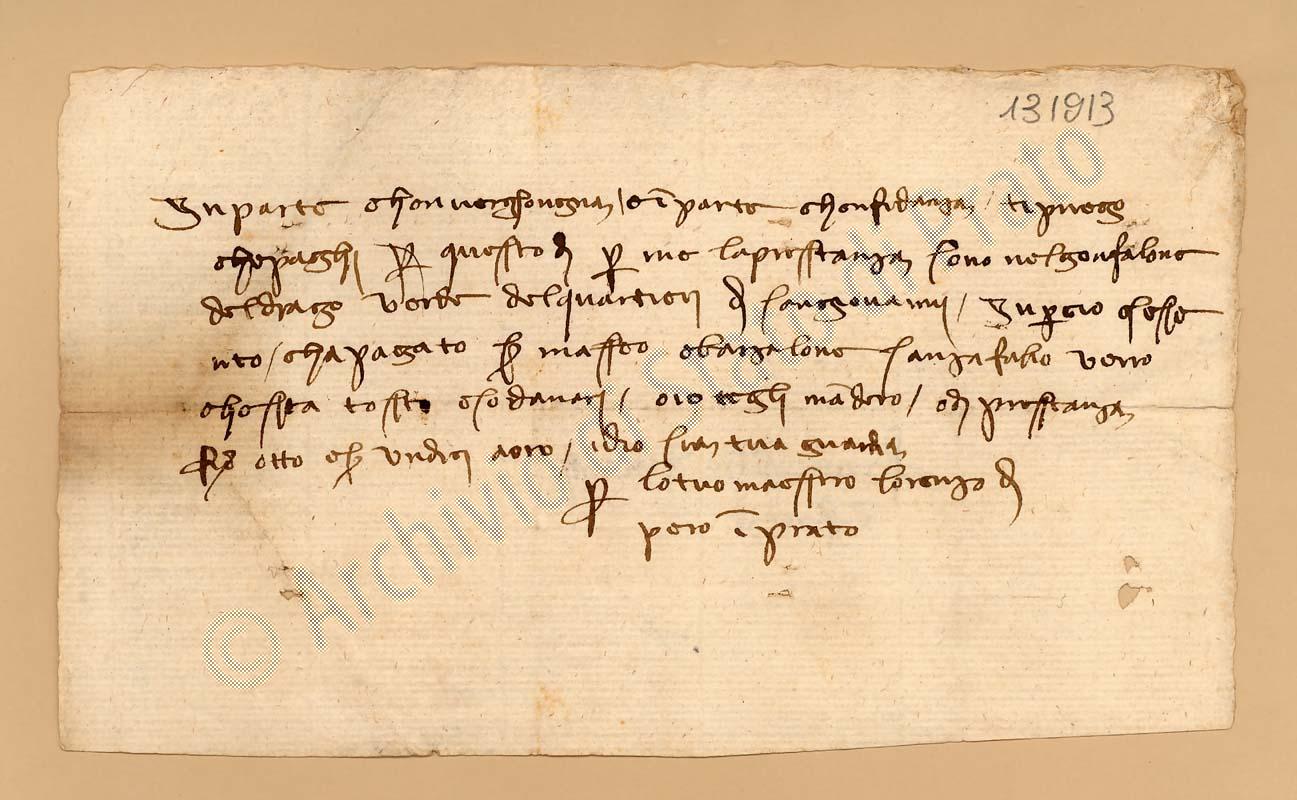 131913
In parte chon verghongnia / e ī parte chonfidanza / ti priegho
che paghi p questo dì p me la prestanza sono nel gonfalone
del drago verde del quartieri di san giovanni / In p cio chesse
nto / cha pagato s maffeo e barzalone sanza fallo verro
chostta tosto e so danari / o io tegli māndero / ed prestanza
otto e s undici a oro / idio sia tua guardia
p lo tuo maesstro lorenzo d
pero ī prato
© Archivio di Stato di Prato